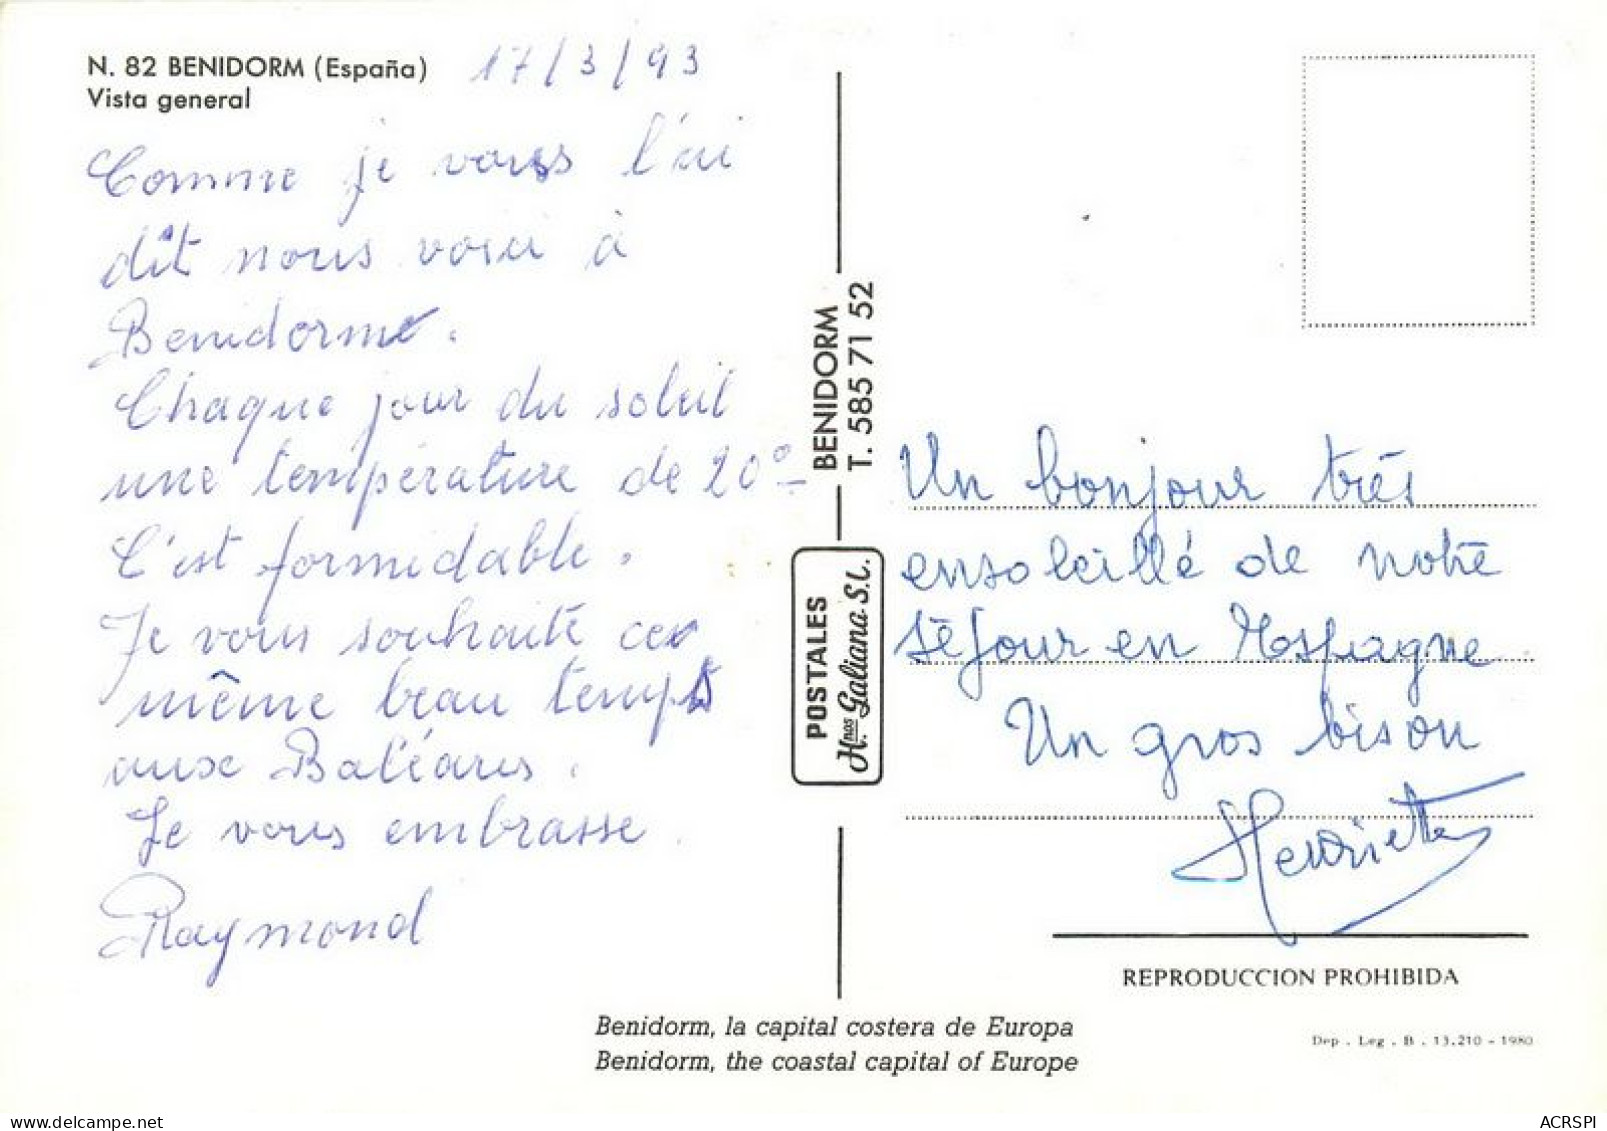 N. 82 BENIDORM (España)
Vista general
17/3/93
Comme je vous l'ai
dit nous voici à
Benidorme.
Chaque jour du soleil
une température de 20°
C'est formidable.
Je vous souhaite ce
même beau temps
aux Baléares.
Je vous embrasse.
Raymond
BENIDORM
T. 585 71 52
POSTALES
H.nos Galiana S.L.
Un bonjour très
ensoleillé de notre
séjour en Espagne
Un gros bisou
Henriette
REPRODUCCION PROHIBIDA
Benidorm, la capital costera de Europa
Benidorm, the coastal capital of Europe
Dep. Leg. B. 13.210 - 1980
delcampe.net
ACRSPI